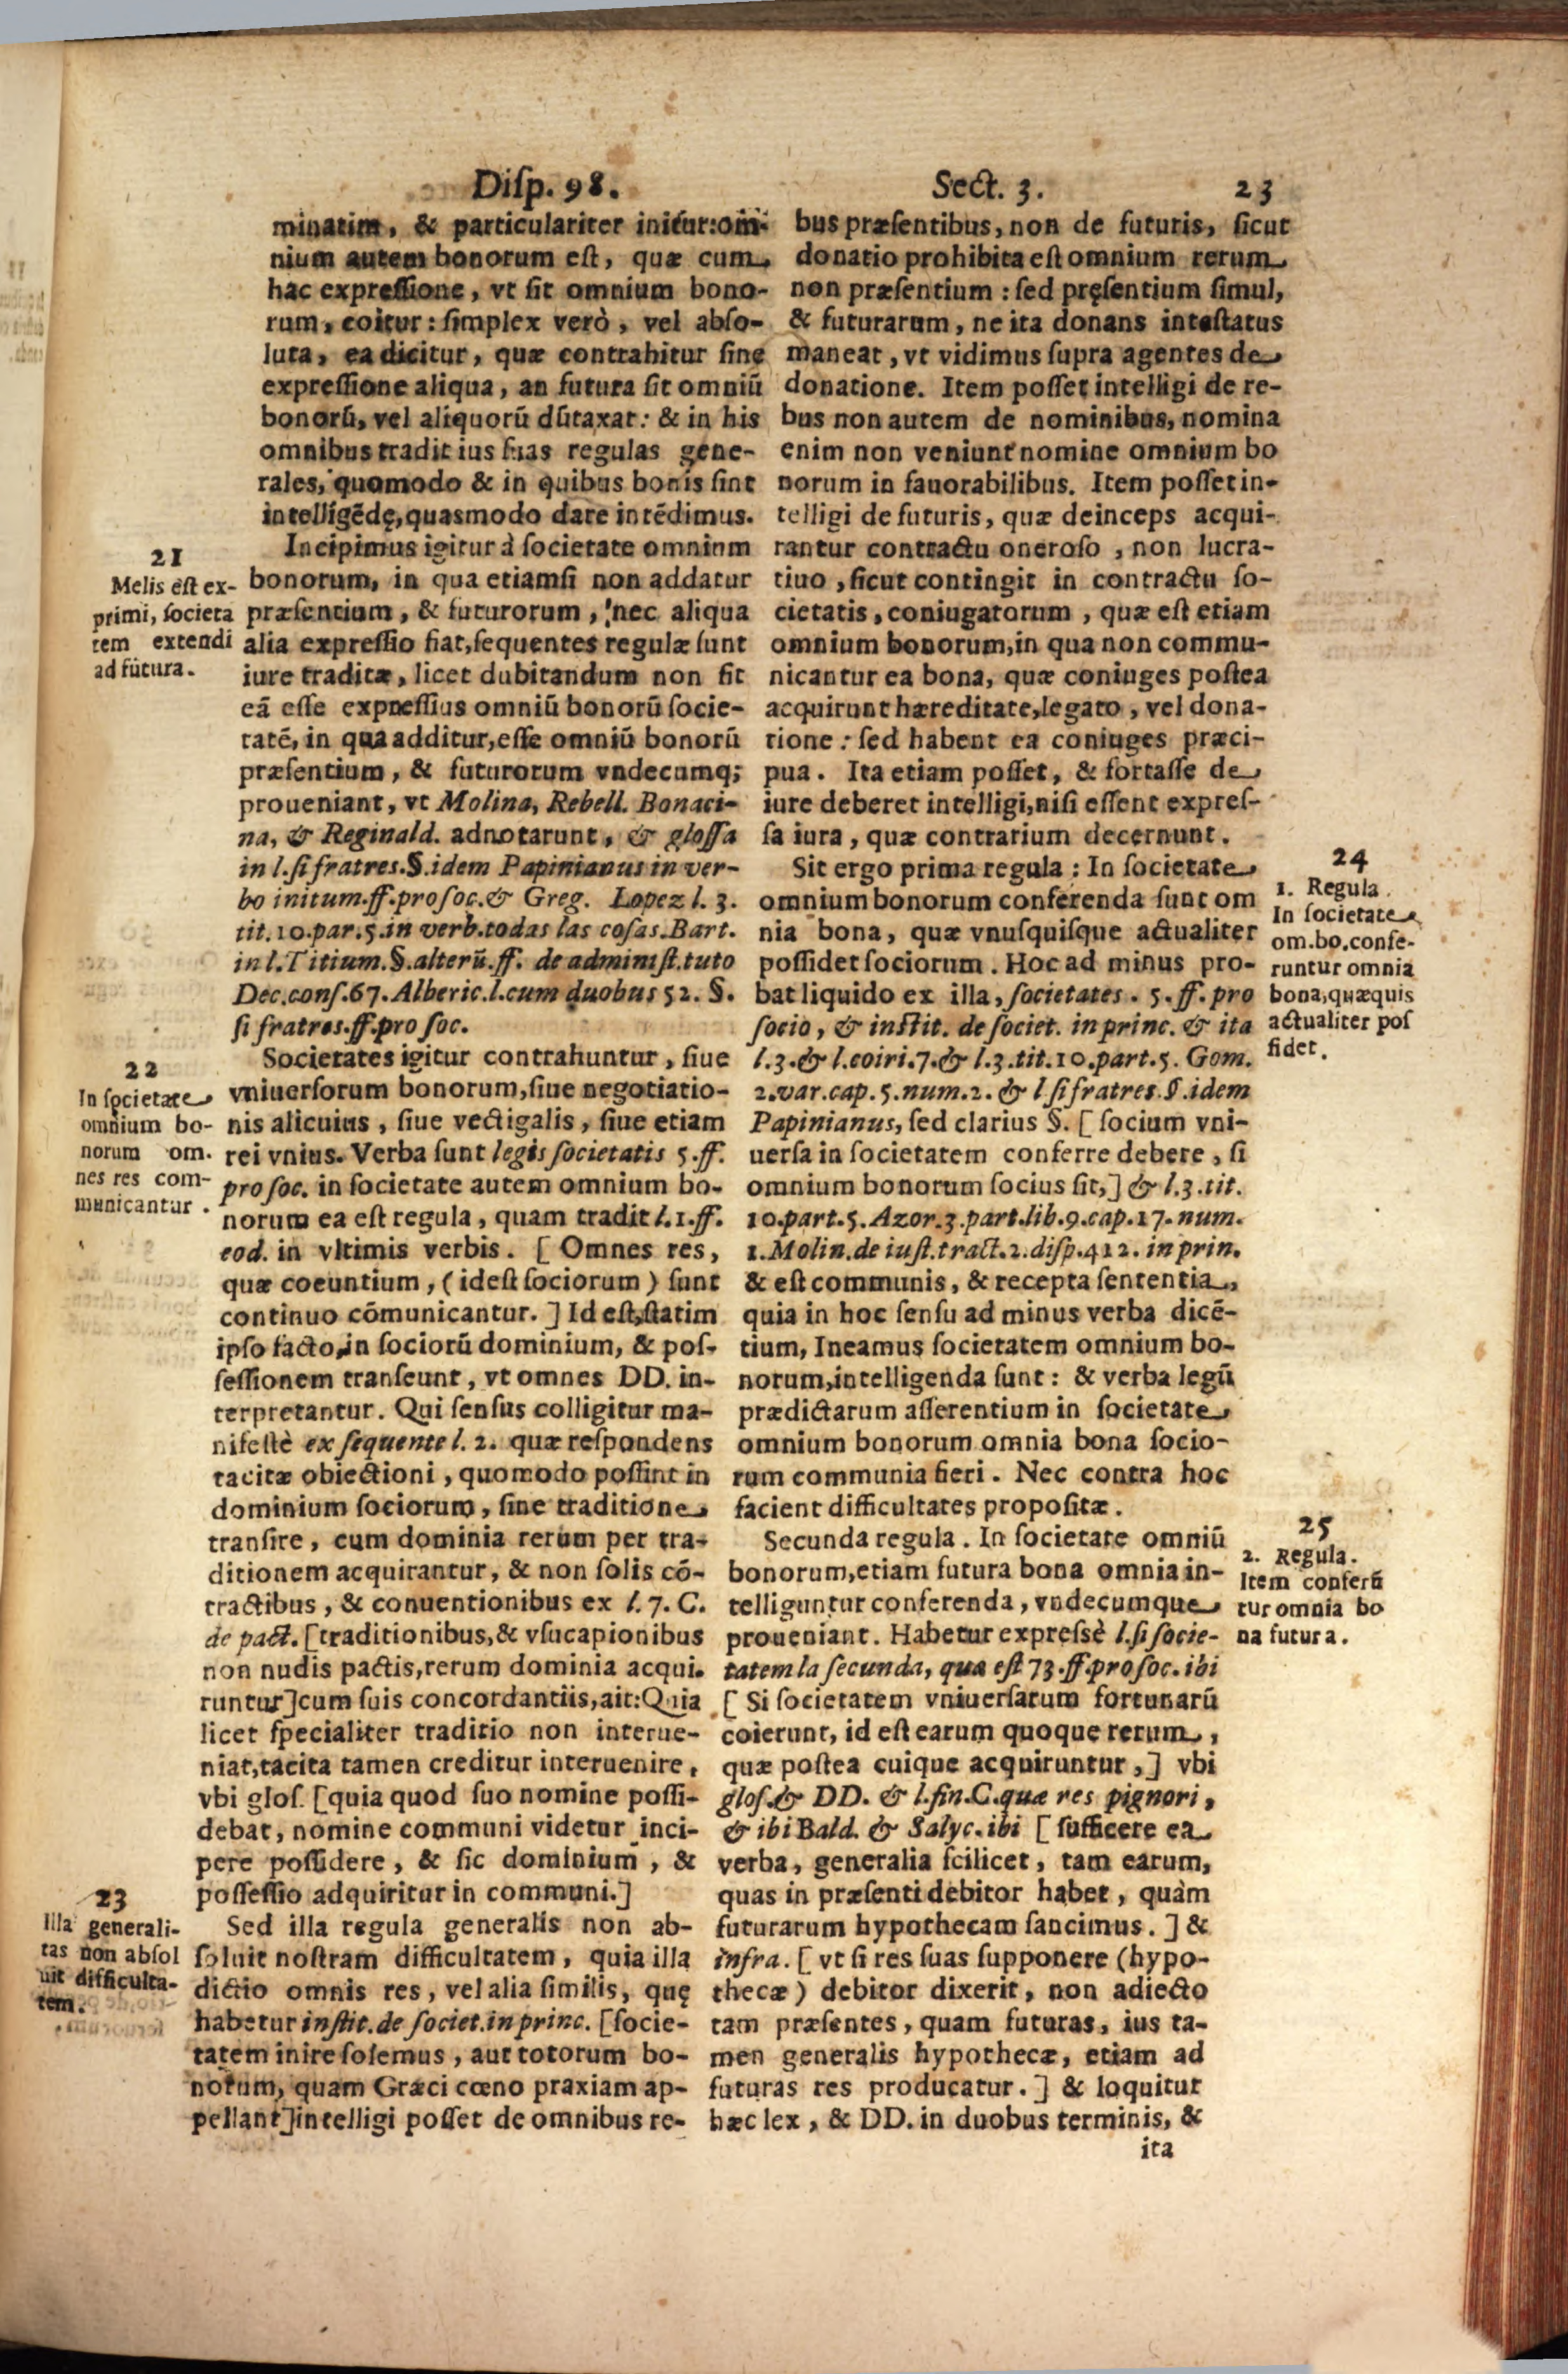 Diſp. 98. Sect. 3. 23
minatim, & particulariter initur: om-
nium autem bonorum eſt, quæ cum
hac expreſſione, vt ſit omnium bono-
rum, coitur: ſimplex verò, vel abſo-
luta, ea dicitur, quæ contrahitur ſine
expreſſione aliqua, an futura ſit omniũ
bonorũ, vel aliquorũ dũtaxat: & in his
omnibus tradit ius ſuas regulas gene-
rales, quomodo & in quibus bonis ſint
intelligẽdę, quasmodo dare intẽdimus.
21
Melis eſt ex-
primi, ſocieta
tem extendi
ad futura.
Incipimus igitur à ſocietate omninm
bonorum, in qua etiamſi non addatur
præſentium, & futurorum, nec aliqua
alia expreſſio fiat, ſequentes regulæ ſunt
iure traditæ, licet dubitandum non ſit
eã eſſe expreſſius omniũ bonorũ ſocie-
tatẽ, in qua additur, eſſe omniũ bonorũ
præſentium, & futurorum vndecumq;
proueniant, vt Molina, Rebell. Bonaci-
na, & Reginald. adnotarunt, & gloſſa
in l. ſi fratres. §. idem Papinianus in ver-
bo initum. ff. pro ſoc. & Greg. Lopez l. 3.
tit. 10. par. 5. in verb. todas las coſas. Bart.
in l. Titium. §. alterũ. ff. de adminiſt. tuto
Dec. conſ. 67. Alberic. l. cum duobus 52. §.
ſi fratres. ff. pro ſoc.
22
In ſocietate
omnium bo-
norum om.
nes res com-
municantur.
Societates igitur contrahuntur, ſiue
vniuerſorum bonorum, ſiue negotiatio-
nis alicuius, ſiue vectigalis, ſiue etiam
rei vnius. Verba ſunt legis ſocietatis 5. ff.
pro ſoc. in ſocietate autem omnium bo-
norum ea eſt regula, quam tradit l. 1. ff.
eod. in vltimis verbis. [ Omnes res,
quæ coeuntium, (ideſt ſociorum) ſunt
continuo cõmunicantur. ] Id eſt, ſtatim
ipſo facto, in ſociorũ dominium, & poſ-
ſeſſionem tranſeunt, vt omnes DD. in-
terpretantur. Qui ſenſus colligitur ma-
nifeſtè ex ſequente l. 2. quæ reſpondens
tacitæ obiectioni, quomodo poſſint in
dominium ſociorum, ſine traditione
tranſire, cum dominia rerum per tra-
ditionem acquirantur, & non ſolis cõ-
tractibus, & conuentionibus ex l. 7. C.
de pact. [traditionibus, & vſucapionibus
non nudis pactis, rerum dominia acqui.
runtur] cum ſuis concordantiis, ait: Quia
licet ſpecialiter traditio non interue-
niat, tacita tamen creditur interuenire,
vbi gloſ. [quia quod ſuo nomine poſſi-
debat, nomine communi videtur inci-
pere poſſidere, & ſic dominium, &
poſſeſſio adquiritur in communi.]
23
Illa generali-
tas non abſol
uit difficulta-
tem.
Sed illa regula generalis non ab-
ſoluit noſtram difficultatem, quia illa
dictio omnis res, vel alia ſimilis, quę
habetur inſtit. de ſociet. in princ. [ſocie-
tatem inire ſolemus, aut totorum bo-
norum, quam Græci cœno praxiam ap-
pellant] intelligi poſſet de omnibus re-
bus præſentibus, non de futuris, ſicut
donatio prohibita eſt omnium rerum
non præſentium: ſed pręſentium ſimul,
& futurarum, ne ita donans inteſtatus
maneat, vt vidimus ſupra agentes de
donatione. Item poſſet intelligi de re-
bus non autem de nominibus, nomina
enim non veniunt nomine omnium bo
norum in fauorabilibus. Item poſſet in-
telligi de futuris, quæ deinceps acqui-
rantur contractu oneroſo, non lucra-
tiuo, ſicut contingit in contractu ſo-
cietatis, coniugatorum, quæ eſt etiam
omnium bonorum, in qua non commu-
nicantur ea bona, quæ coniuges poſtea
acquirunt hæreditate, legato, vel dona-
tione: ſed habent ea coniuges præci-
pua. Ita etiam poſſet, & fortaſſe de
iure deberet intelligi, niſi eſſent expreſ-
ſa iura, quæ contrarium decernunt.
24
1. Regula.
In ſocietate
om. bo. confe-
runtur omnia
bona, quæquis
actualiter poſ
ſidet.
Sit ergo prima regula: In ſocietate
omnium bonorum conferenda ſunt om
nia bona, quæ vnuſquiſque actualiter
poſſidet ſociorum. Hoc ad minus pro-
bat liquido ex illa, ſocietates. 5. ff. pro
ſocio, & inſtit. de ſociet. in princ. & ita
l. 3. & l. coiri. 7. & l. 3. tit. 10. part. 5. Gom.
2. var. cap. 5. num. 2. & l ſi fratres. §. idem
Papinianus, ſed clarius §. [ ſocium vni-
uerſa in ſocietatem conferre debere, ſi
omnium bonorum ſocius ſit,] & l. 3. tit.
10. part. 5. Azor. 3. part. lib. 9. cap. 17. num.
1. Molin. de iuſt. tract. 2. diſp. 412. in prin.
& eſt communis, & recepta ſententia,
quia in hoc ſenſu ad minus verba dicẽ-
tium, Ineamus ſocietatem omnium bo-
norum, intelligenda ſunt: & verba legũ
prædictarum aſſerentium in ſocietate
omnium bonorum omnia bona ſocio-
rum communia fieri. Nec contra hoc
facient difficultates propoſitæ.
25
2. Regula.
Item conferũ
tur omnia bo
na futura.
Secunda regula. In ſocietate omniũ
bonorum, etiam futura bona omnia in-
telliguntur conferenda, vndecumque
proueniant. Habetur expreſsè l. ſi ſocie-
tatem la ſecunda, qua eſt 73. ff. pro ſoc. ibi
[ Si ſocietatem vniuerſarum fortunarũ
coierunt, id eſt earum quoque rerum,
quæ poſtea cuique acquiruntur,] vbi
gloſ. & DD. & l. fin. C. quæ res pignori,
& ibi Bald. & Salyc. ibi [ ſufficere ea
verba, generalia ſcilicet, tam earum,
quas in præſenti debitor habet, quàm
futurarum hypothecam ſancimus. ] &
infra. [ vt ſi res ſuas ſupponere (hypo-
thecæ) debitor dixerit, non adiecto
tam præſentes, quam futuras, ius ta-
men generalis hypothecæ, etiam ad
futuras res producatur. ] & loquitur
hæc lex, & DD. in duobus terminis, &
ita